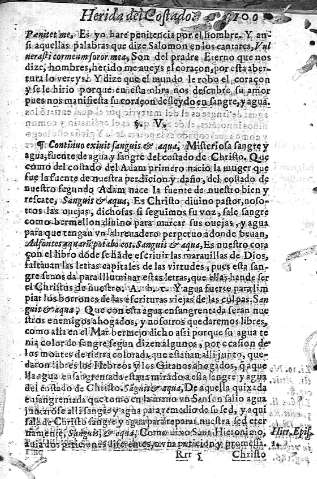 Herida del Costado. 500
Pœnitet me, Es yo hare penitencia por el hombre. Y an-
si aquellas palabras que dize Salomon en los cantares, Vul
nerasti cor meum soror mea, Son del padre Eterno que nos
dize, hombres, herido me aueys el coraçon, por esta aber
tura lo vereys. Y dize que el mundo le robo el coraçon
y se le hirio porque en esta obra nos descubre su amor
pues nos manifiesta su coraçon desleydo en sangre, y agua.
§. V.
¶ Continuo exiuit sanguis & aqua, Misteriosa sangre y
agua, fuente de agua y sangre del costado de Christo. Que
como del costado del Adam primero nacio la muger que
fue la fuente de nuestra perdicion y daño, del costado de
nuestro segundo Adam nace la fuente de nuestro bien y
rescate, Sanguis & aqua, Es Christo diuino pastor, noso-
tros las ouejas, dichosas si seguimos su voz, sale sangre
como bermellon diuino para marcar sus ouejas, y agua
para que tengan vn abreuadero perpetuo adonde beuan,
Sanguis & aqua, Es nuestro cora
çon el libro dõde se hã de escriuir las marauillas de Dios,
faltauan las letras capitales de las virtudes, pues esta san
gre para illuminar estas letras, que ellas han de ser
el Christus de nuestro. A. b. c. Y agua fuerte para lim
piar los borrones de las escrituras viejas de las culpas. San
guis & aqua, Que con esta agua ensangrentada seran nue
stros enemigos ahogados, y nosotros quedaremos libres,
como alla en el Mar bermejo dicho assi porque su agua te
nia color de sangre segun dizen algunos, por ocasion de
los montes de tierra colorada que estañan alli junto, que-
daron libres los Hebreos y los Gitanos ahogados,
agua ensangrentada sangre y agua
del costado de Christo. Sanguis & aqua, De aquella quixada
ensangrentada que tomo en la mano vn Sanson salio agua
sangre y agua para remedio de su sed, y aqui
sale de Christo sangre y agua para reparar nuestra sed eter
namente, Sanguis, & aqua, Como dixo Sant Hieronimo,
Hier. Epis.
peticion y promessa
Rrr 5 Christo